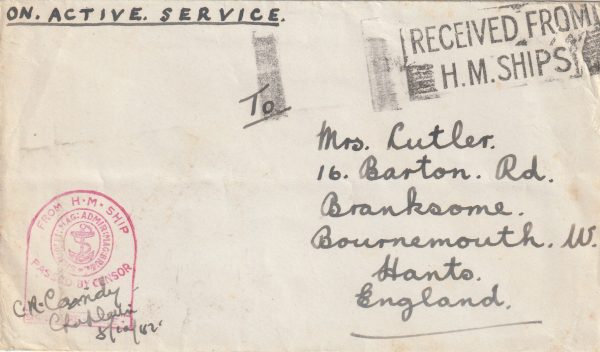 ON. ACTIVE. SERVICE.
RECEIVED FROM
H.M. SHIPS
To
Mrs. Lutler.
16. Barton. Rd.
Branksome.
Bournemouth. W.
Hants.
England.
FROM H·M·SHIP
PASSED BY CENSOR
Chaplain
8/10/42.